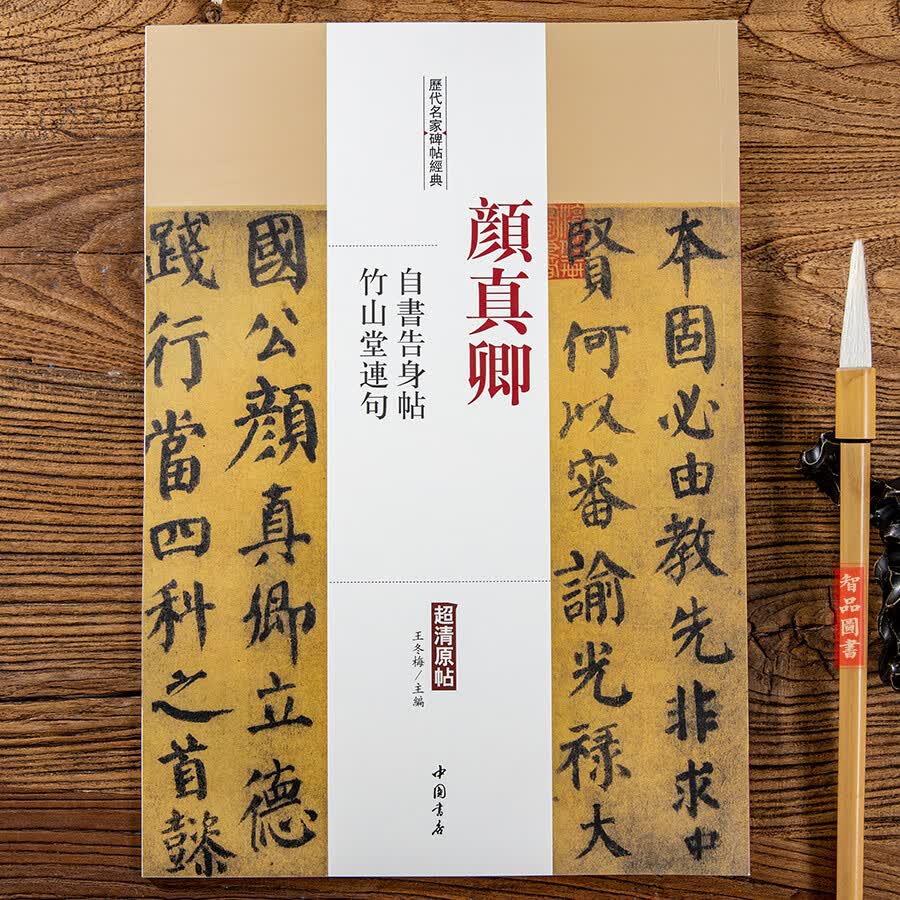 歷代名家碑帖經典
顏真卿
自書告身帖
竹山堂連句
超清原帖
王冬梅/主編
中國書店
本固必由教先非求中
賢何以審諭光祿大
國公顏真卿立德
踐行當四科之首懿
智品圖書